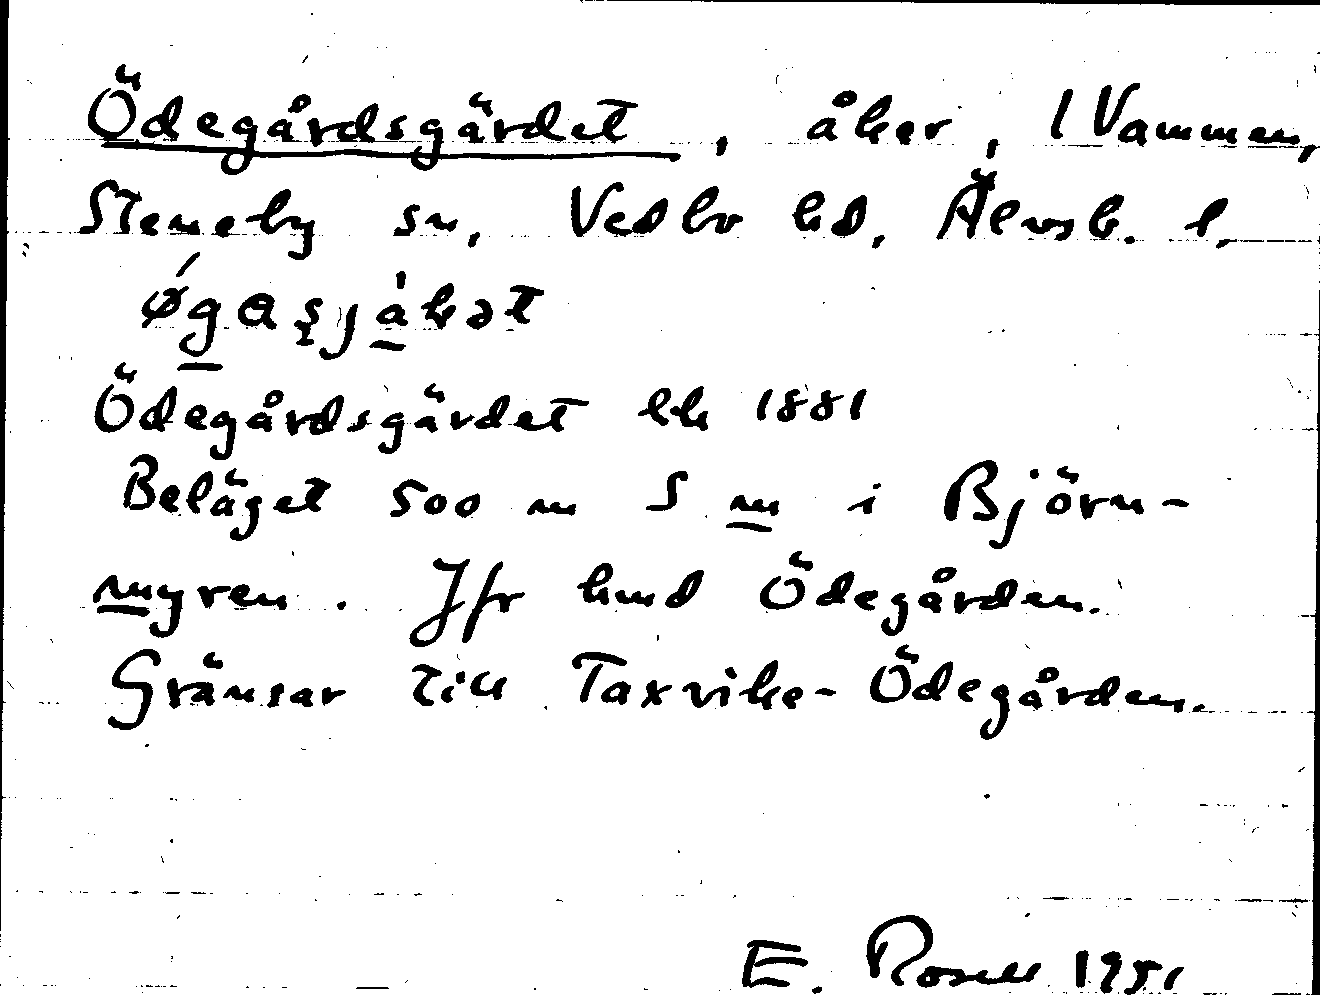 Ödegårdsgärdet, åker, 1 Vammen,
Steneby sn, Vedbo hd, Älvsb. l.
Ödegårdsgärdet lk 1881
Beläget 500 m S m i Björn-
myren. Jfr hmd Ödegården.
Gränsar till Taxvike-Ödegården.
E. Rosell 1951